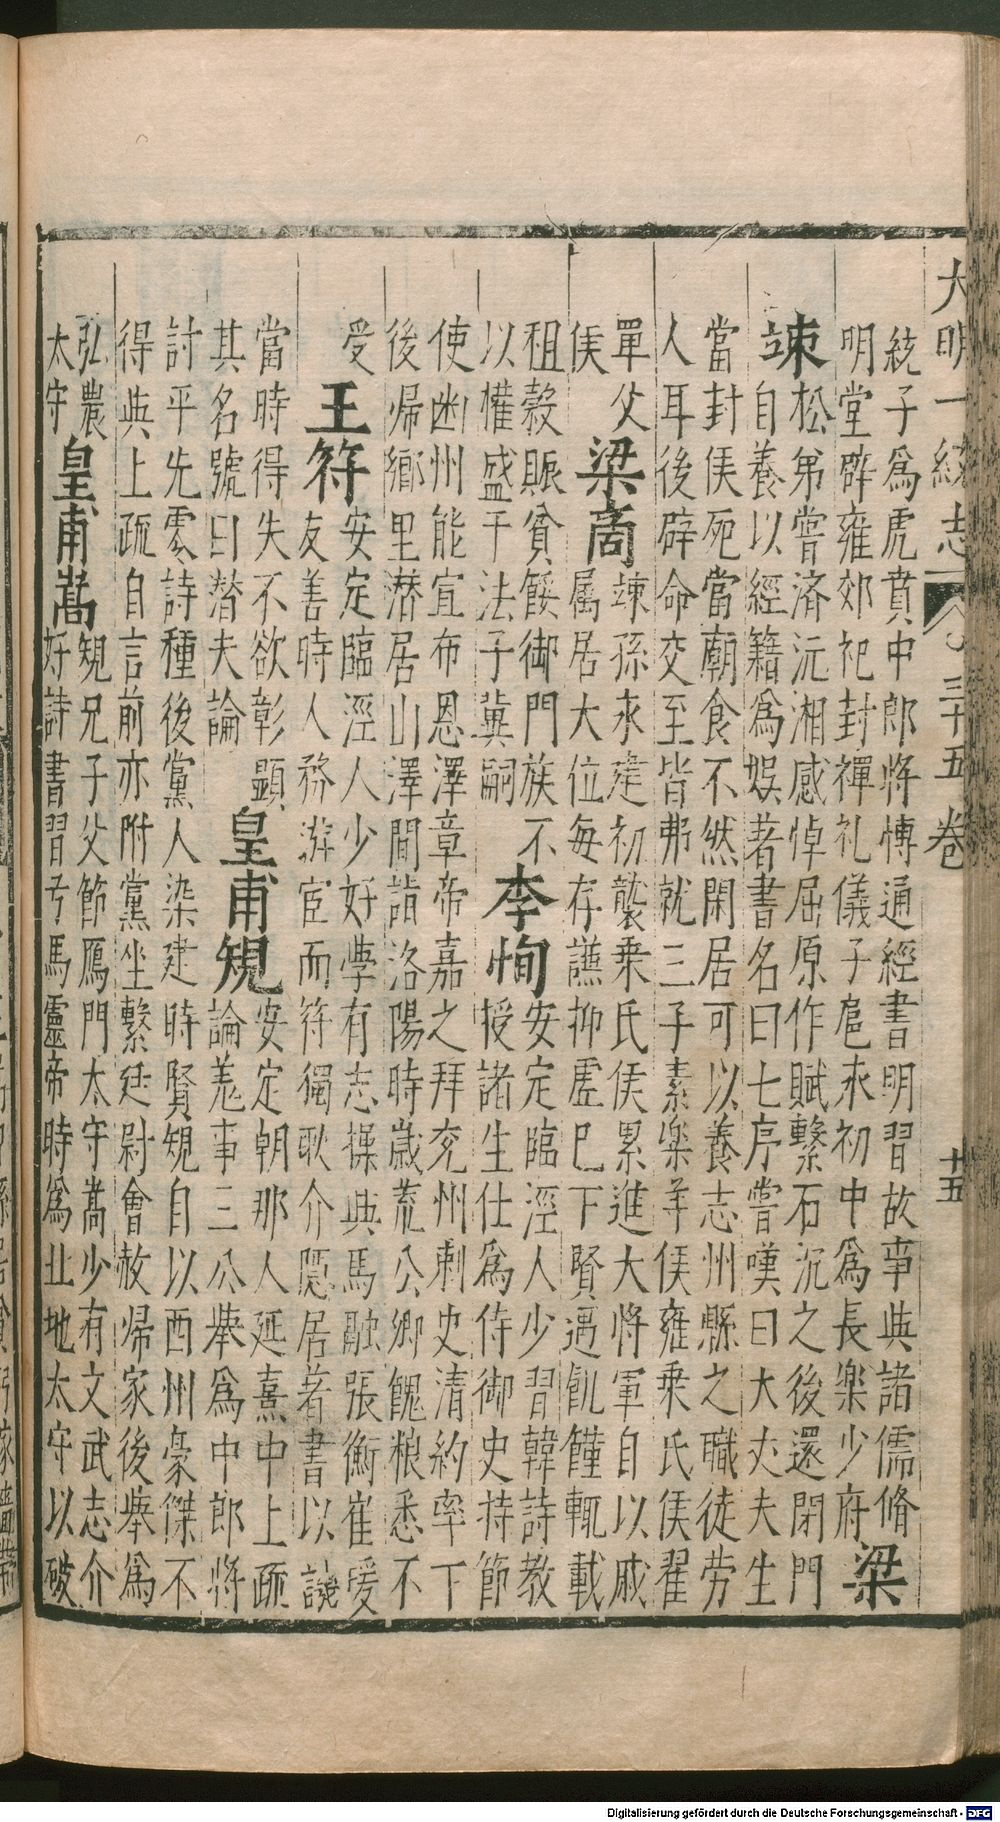 大明一統志 三十五卷 十五
統子爲虎賁中郎將博通經書明習故事典諸儒脩
明堂辟雍郊祀封禪礼儀子扈永初中爲長樂少府 梁
竦 松弟嘗濟沅湘感悼屈原作賦繫石沉之後還閉門
自養以經籍爲娯著書名曰七序嘗嘆曰大丈夫生
當封侯死當廟食不然閑居可以養志州縣之職徒劳
人耳後辟命交至皆弗就三子素樂羊侯雍乗氏侯翟
單父
侯 梁商 竦孫永建初襲乗氏侯累進大将軍自以戚
属居大位毎存謙抑虚巳下賢遇飢饉輒載
租穀賑貧餒御門族不
以權盛干法子冀嗣 李恂 安定臨涇人少習韓詩教
授諸生仕爲侍御史持節
使幽州能宣布恩澤章帝嘉之拜兖州刺史清約率下
後帰郷里潜居山澤間詣洛陽時歳荒公卿餽粮悉不
受 王符 安定臨涇人少好學有志操典馬融張衡崔瑗
友善時人務游宦而符獨耿介隱居著書以譏
當時得失不欲彰顯
其名號曰潜夫論 皇甫規 安定朝那人延熹中上疏
論羗事三公舉爲中郎將
討平先零諸種後黨人染逮時賢規自以西州豪傑不
得典上疏自言前亦附黨坐繫廷尉會赦帰家後舉爲
弘農
太守 皇甫嵩 規兄子父節鴈門太守嵩少有文武志介
好詩書習弓馬靈帝時爲北地太守以破
Digitalisierung gefördert durch die Deutsche Forschungsgemeinschaft - DFG